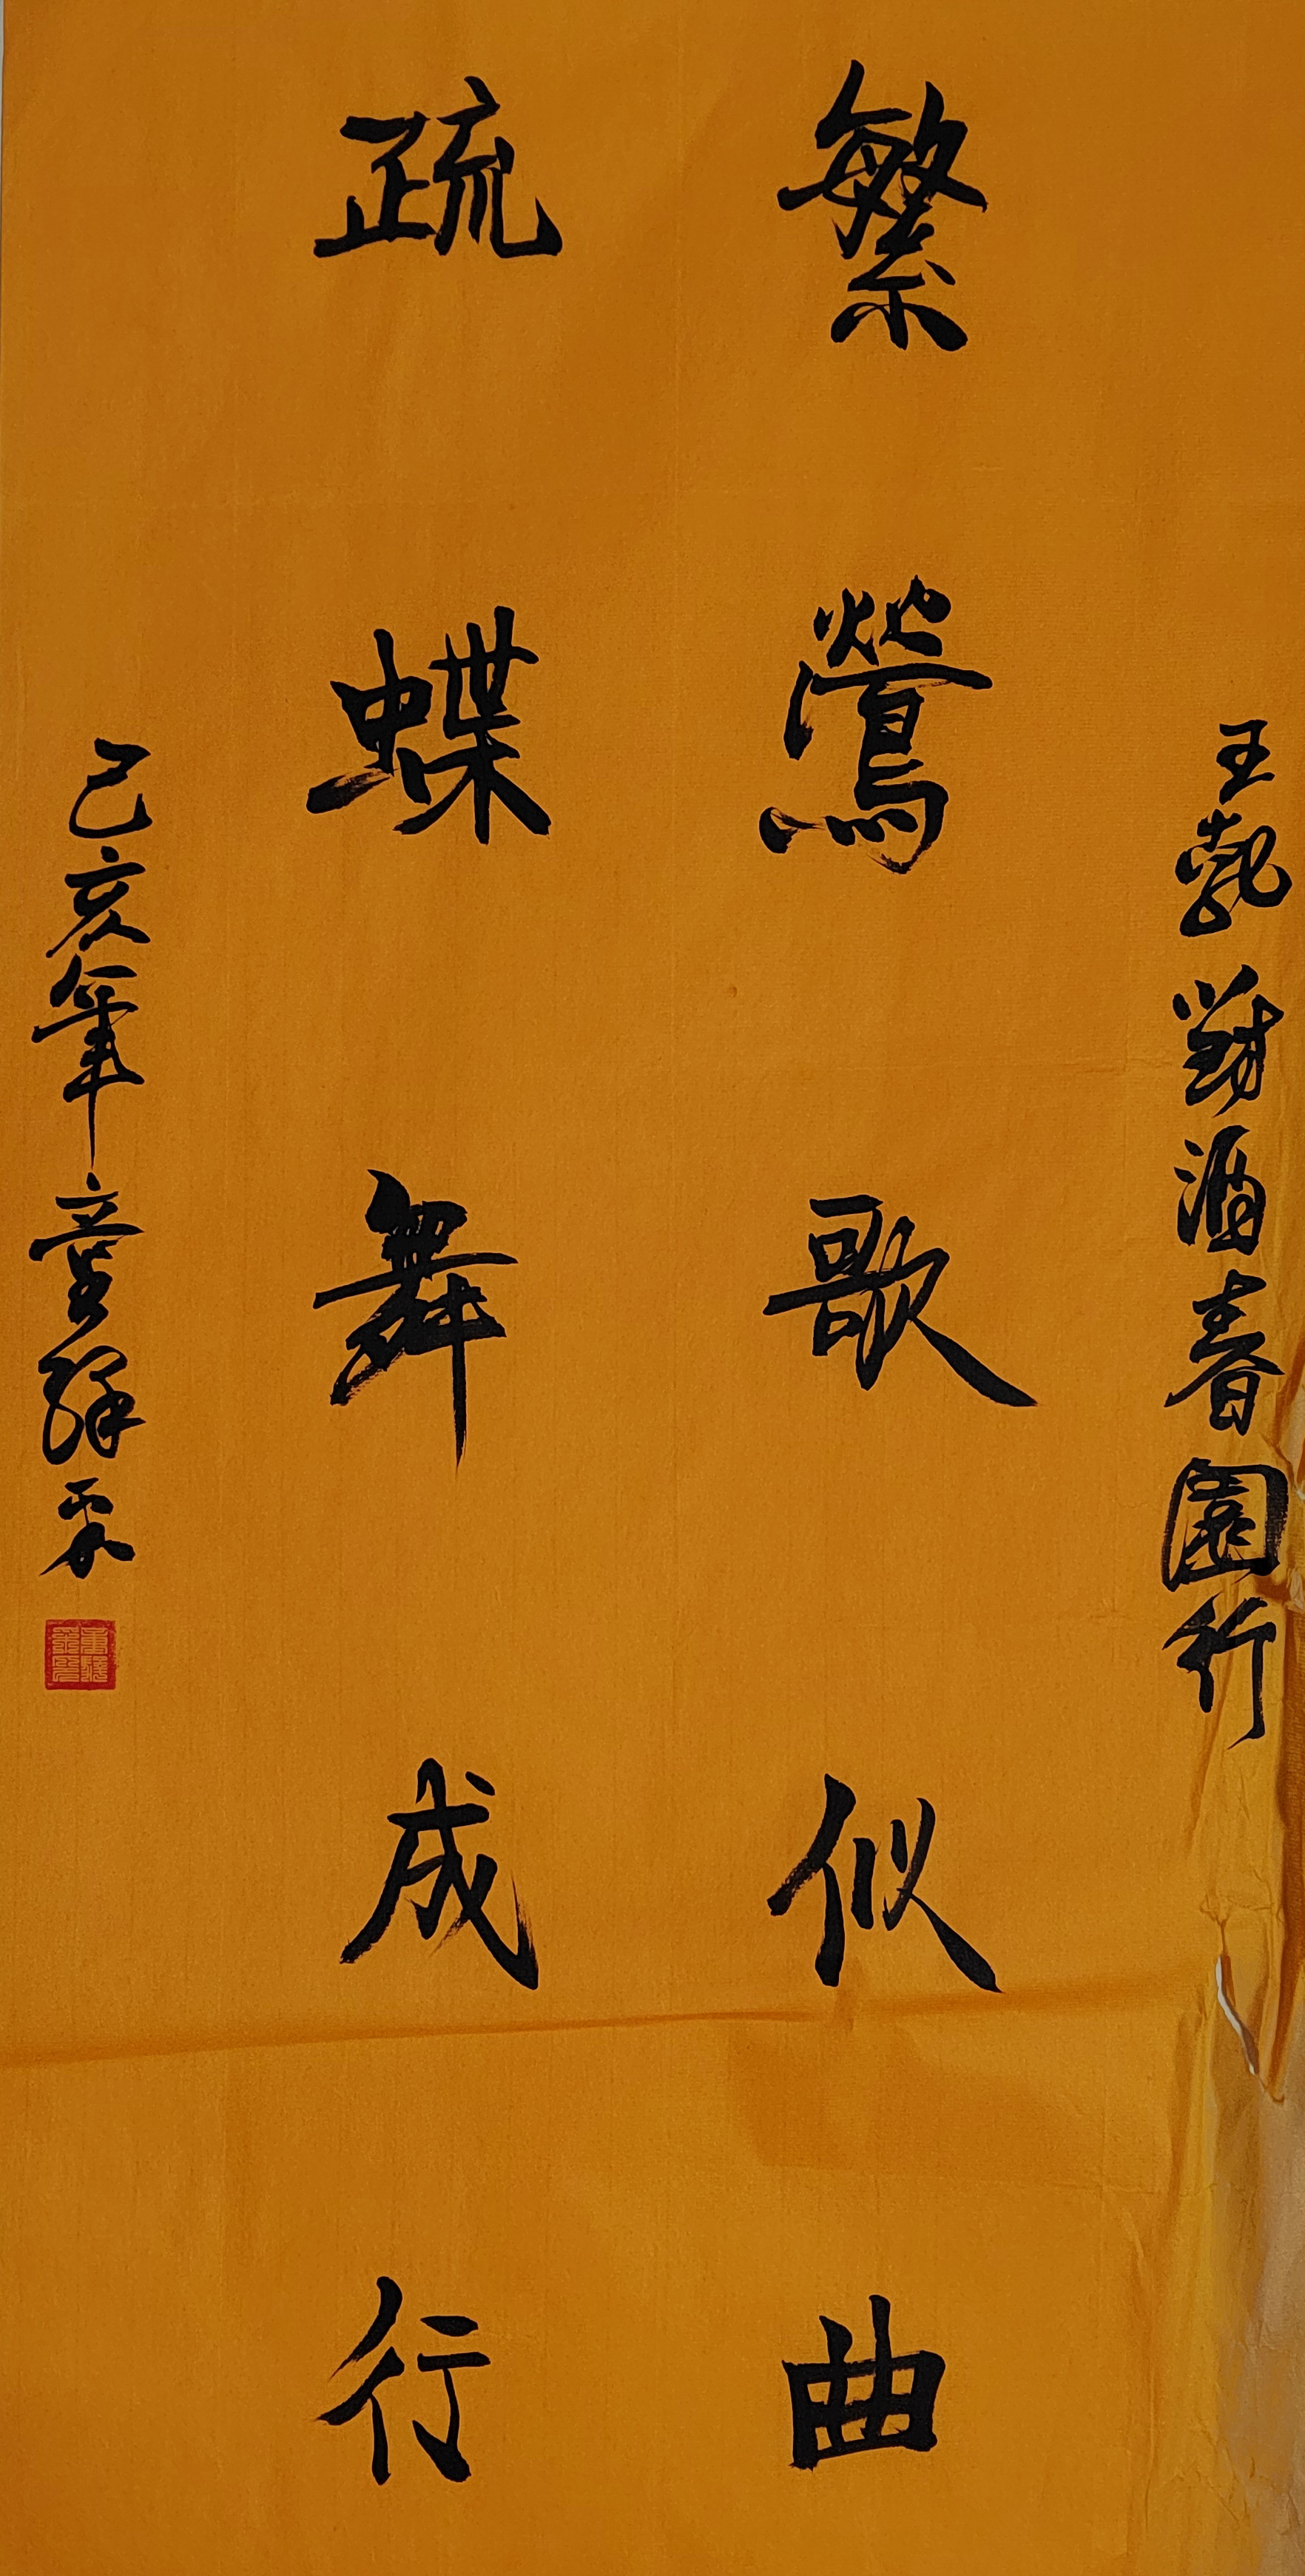 王勃對酒春園行
繁鶯歌似曲
疏蝶舞成行
己亥年童驛采